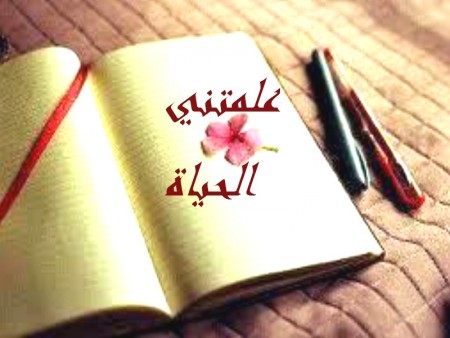 علمتني
الحياة